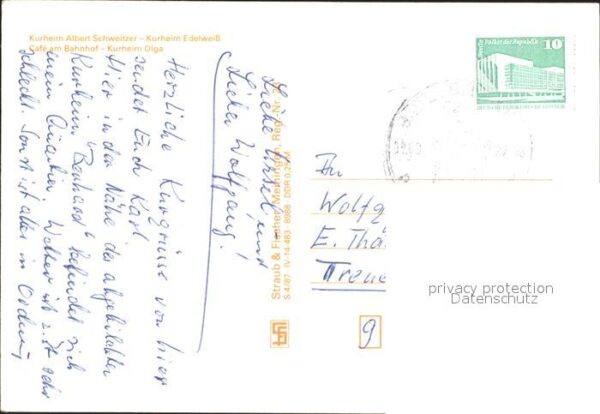 Kurheim Albert Schweitzer – Kurheim Edelweiß
Café am Bahnhof – Kurheim Olga
Liebe Ursel und
Lieber Wolfgang!
Herzliche Kurgrüsse von hier
sendet Euch Karl
Hier in der Nähe des abgebildeten
Kurheim "Bernhard" befindet sich
mein Quartier. Wetter ist z. Zt sehr
schlecht. Sonst ist alles in Ordnung
Straub & Fischer, Meiningen, Reg.-Nr.
S 4/87 IV-14-483 6988 DDR 0,25 M
Palast der Republik
10
An
Wolfg
E. Thä
Treue
9
privacy protection
Datenschutz